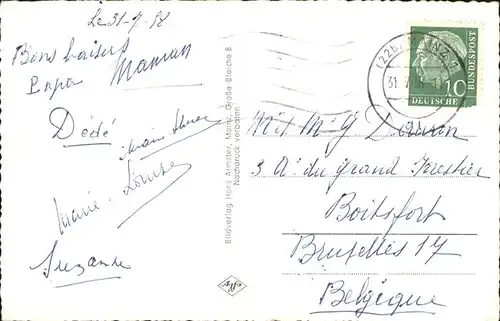 Le 31-7-58
Bons baisers
Papa Maman
Dédé
Marie-Louise
Suzanne
Bildverlag Hans Armster, Mainz, Große Bleiche 8
Nachdruck verboten
(22b) MAINZ 1
31. 7.
10
DEUTSCHE
BUNDESPOST
Mr Mme G
3 A. du grand Forestier
Boitsfort
Bruxelles 17
Belgique